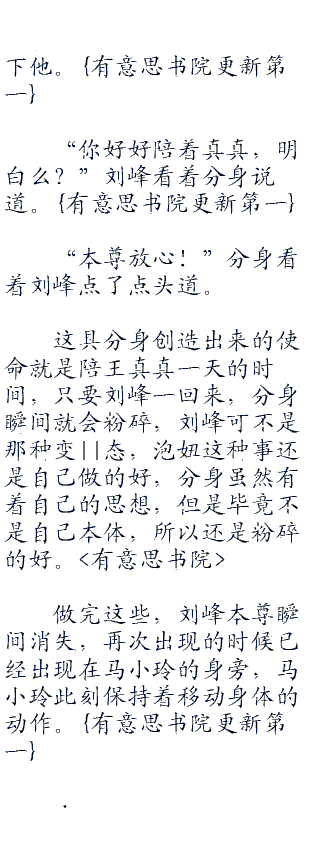 下他。{有意思书院更新第
一}
“你好好陪着真真，明
白么？”刘峰看着分身说
道。{有意思书院更新第一}
“本尊放心！”分身看
着刘峰点了点头道。
这具分身创造出来的使
命就是陪王真真一天的时
间，只要刘峰一回来，分身
瞬间就会粉碎，刘峰可不是
那种变||态，泡妞这种事还
是自己做的好，分身虽然有
着自己的思想，但是毕竟不
是自己本体，所以还是粉碎
的好。<有意思书院>
做完这些，刘峰本尊瞬
间消失，再次出现的时候已
经出现在马小玲的身旁，马
小玲此刻保持着移动身体的
动作。{有意思书院更新第
一}
.